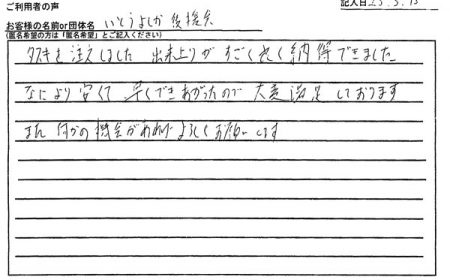 ご利用者の声
記入日 23.3.13
お客様の名前or団体名 いとうよしか後援会
(匿名希望の方は「匿名希望」とご記入ください)
タスキを注文しました 出来上りがすごく良く納得できました
なにより安くて早くできあがったので大変満足しております
また何かの機会があればよろしくお願いします